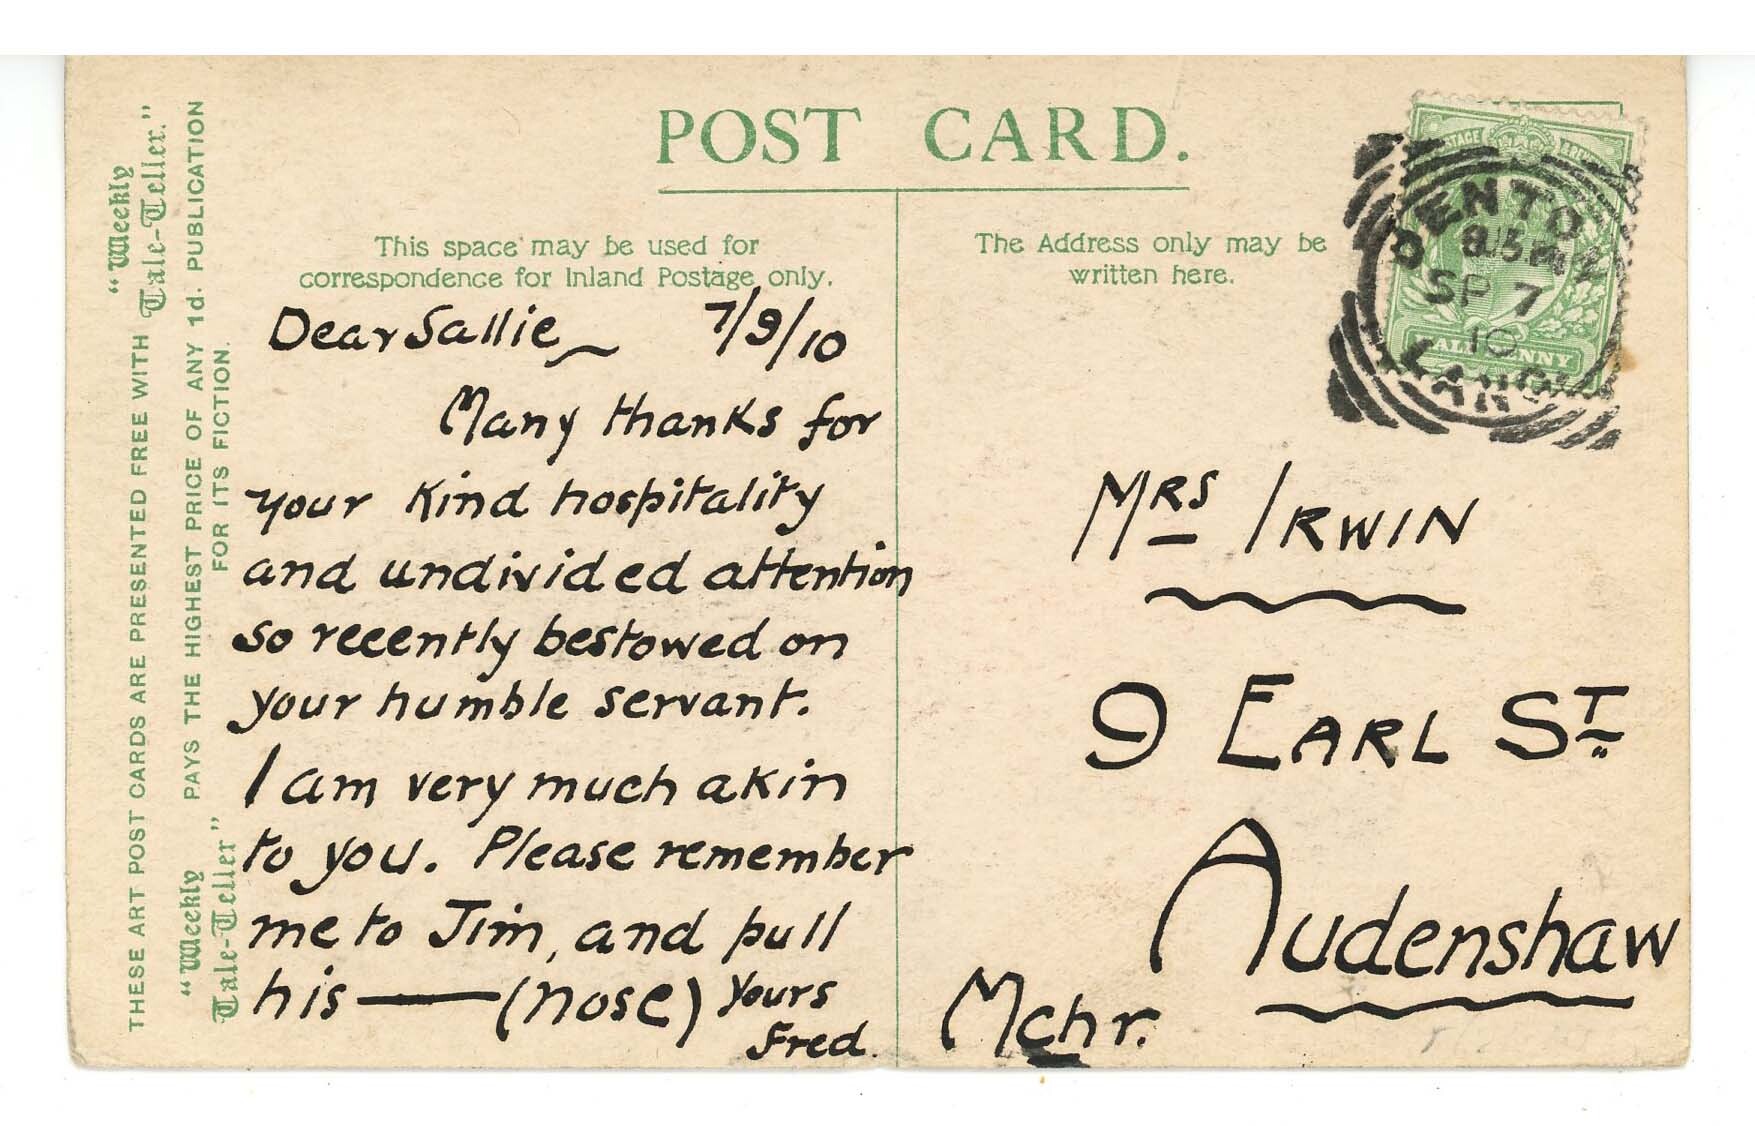 POST CARD.
This space may be used for
correspondence for Inland Postage only.
The Address only may be
written here.
Dear Sallie 7/9/10
Many thanks for
your kind hospitality
and undivided attention
so recently bestowed on
your humble servant.
I am very much akin
to you. Please remember
me to Jim, and pull
his — (nose) Yours
Fred.
Mrs Irwin
9 Earl St.
Audenshaw
Mchr.
DENTON
SP 7
10
LANC
THESE ART POST CARDS ARE PRESENTED FREE WITH "Weekly Tale-Teller."
"Weekly Tale-Teller" PAYS THE HIGHEST PRICE OF ANY 1d. PUBLICATION
FOR ITS FICTION.